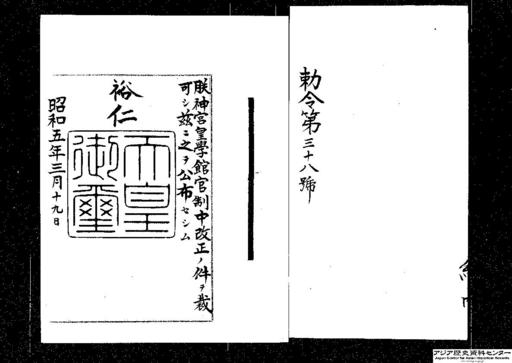 勅令第三十八號
朕神宮皇學館官制中改正ノ件ヲ裁
可シ玆ニ之ヲ公布セシム
裕仁
天皇御璽
昭和五年三月十九日
アジア歴史資料センター
Japan Center for Asian Historical Records